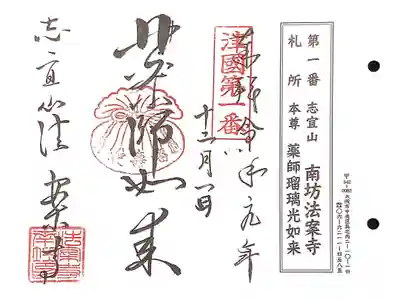 第一番 志宜山 南坊法案寺
札所 本尊 薬師瑠璃光如来
奉拝 令和元年
十二月一日
津國第一番
薬師如来
志宜山法案寺